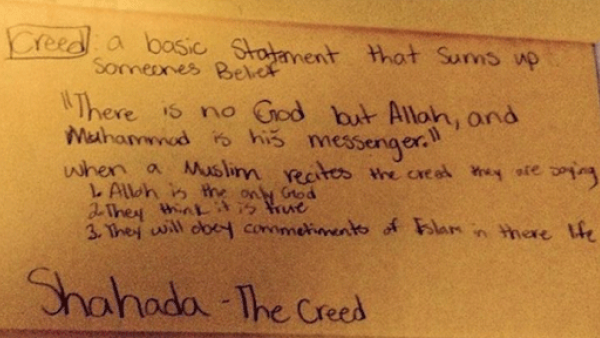 Creed: a basic Statment that sums up
someones Belief
"There is no God but Allah, and
Muhammad is his messenger."
when a Muslim recites the creed they are saying
1. Allah is the only God
2. They think it is true
3. They will obey commetiments of Islam in there life
Shahada - The Creed